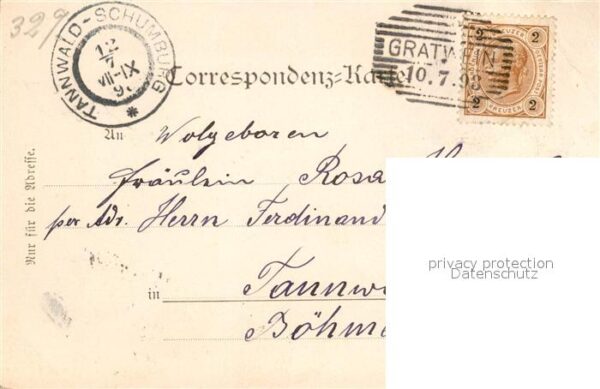 329
TANNWALD-SCHUMBURG
12
7
VII-IX
9
*
GRATWEIN
10.7.98
2 KREUZER 2
2 KREUZER 2
Correspondenz-Karte
An
Wolgeboren
Fräulein Rosa
per Adr. Herrn Ferdinand
in Tannw
Böhm
Nur für die Adresse.
privacy protection
Datenschutz